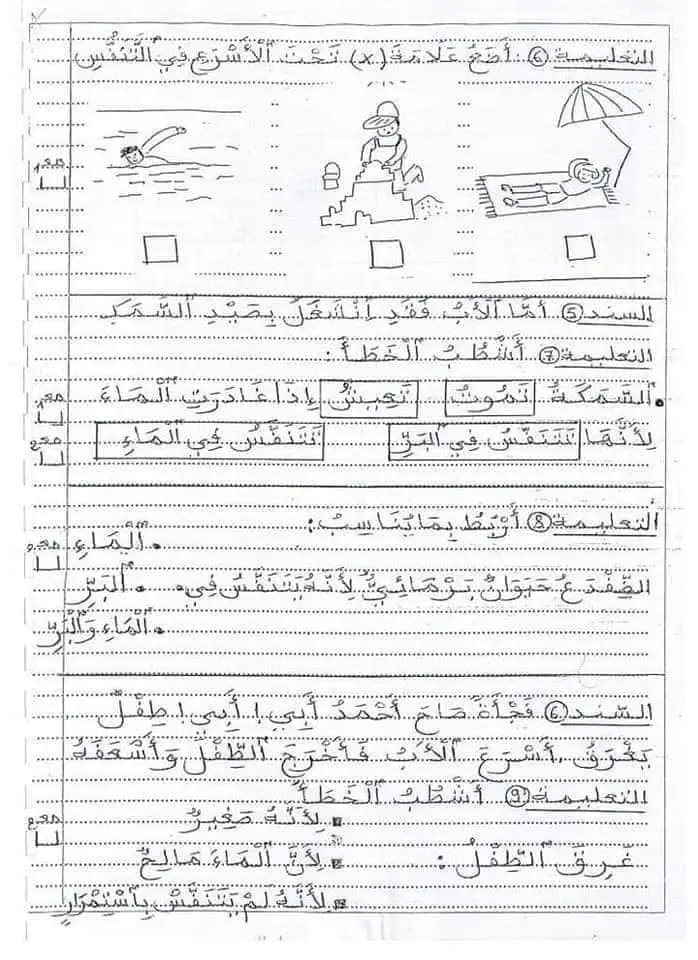 التعليمة 6 أَضَعُ عَلَامَةَ (x) تَحْتَ الْأَسْرَعِ فِي التَّنَفُّسِ
مع1
السند 5 أَمَّا الْأَبُ فَقَدِ انْشَغَلَ بِصَيْدِ السَّمَكِ
التعليمة 7 أَشْطُبُ الْخَطَأَ :
السَّمَكَةُ تَمُوتُ تَعِيشُ إِذَا غَادَرَتِ الْمَاءَ
لِأَنَّهَا تَتَنَفَّسُ فِي البَرِّ تَتَنَفَّسُ فِي الْمَاءِ
التعليمة 8 أَرْبُطُ بِمَا يُنَاسِبُ :
الْمَاءِ
الضِّفْدَعُ حَيَوَانٌ بَرْمَائِيٌّ لِأَنَّهُ يَتَنَفَّسُ فِي البَرِّ
الْمَاءِ وَالْبَرِّ
السّند 6 فَجْأَةً صَاحَ أَحْمَدُ أَبِي! أَبِي! طِفْلٌ
يَغْرَقُ. أَسْرَعَ الْأَبُ فَأَخْرَجَ الطِّفْلَ وَأَسْعَفَهُ
التعليمة 9 أَشْطُبُ الْخَطَأَ
لِأَنَّهُ صَغِيرٌ
غَرِقَ الطِّفْلُ : لِأَنَّ الْمَاءَ مَالِحٌ
لِأَنَّهُ لَمْ يَتَنَفَّسْ بِاسْتِمْرَارٍ